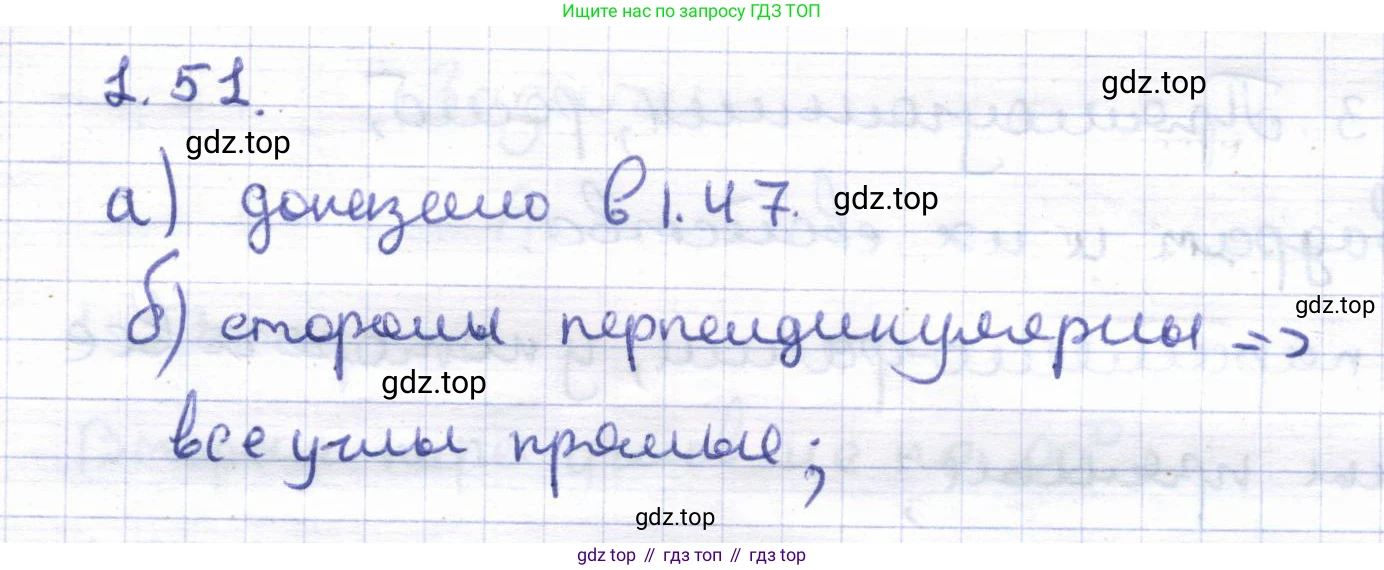 Ищите нас по запросу ГДЗ ТОП
1.51.
gdz.top
gdz.top
а) доказано в 1.47.
gdz.top
gdz.top
б) стороны перпендикулярны =>
gdz.top
все углы прямые;
gdz.top
gdz top // гдз топ // gdz top